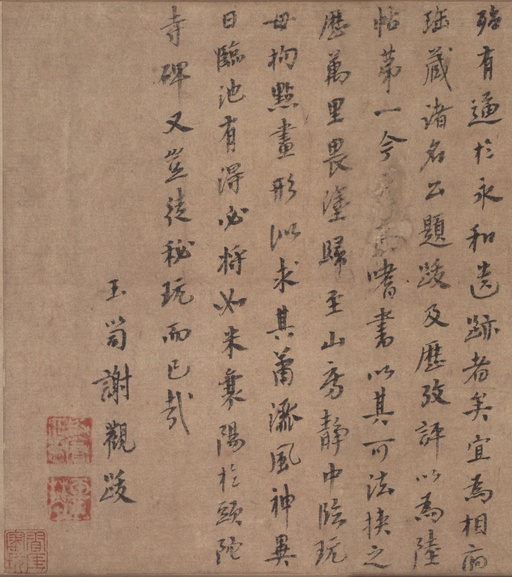 殆有通於永和遺跡者矣宜為相府
珎藏諸名公題跋及歷攷評以為陸
帖第一今嗜書以其可法挾之
歷萬里畏塗歸至山房靜中臨玩
毋拘點畫形似求其蕭灑風神異
日臨池有得必将如米襄陽於頭陀
寺碑又豈徒秘玩而已哉
玉笥謝觀跋